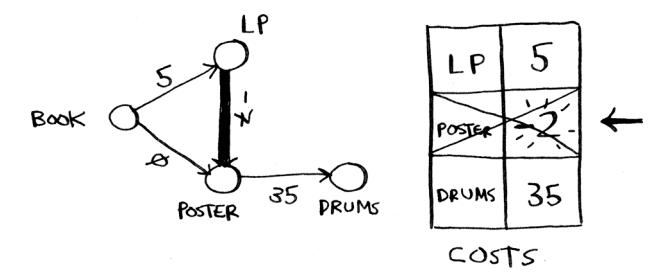 LP
5
BOOK
-7
Ø
35
POSTER
DRUMS
LP 5
POSTER -2
DRUMS 35
COSTS